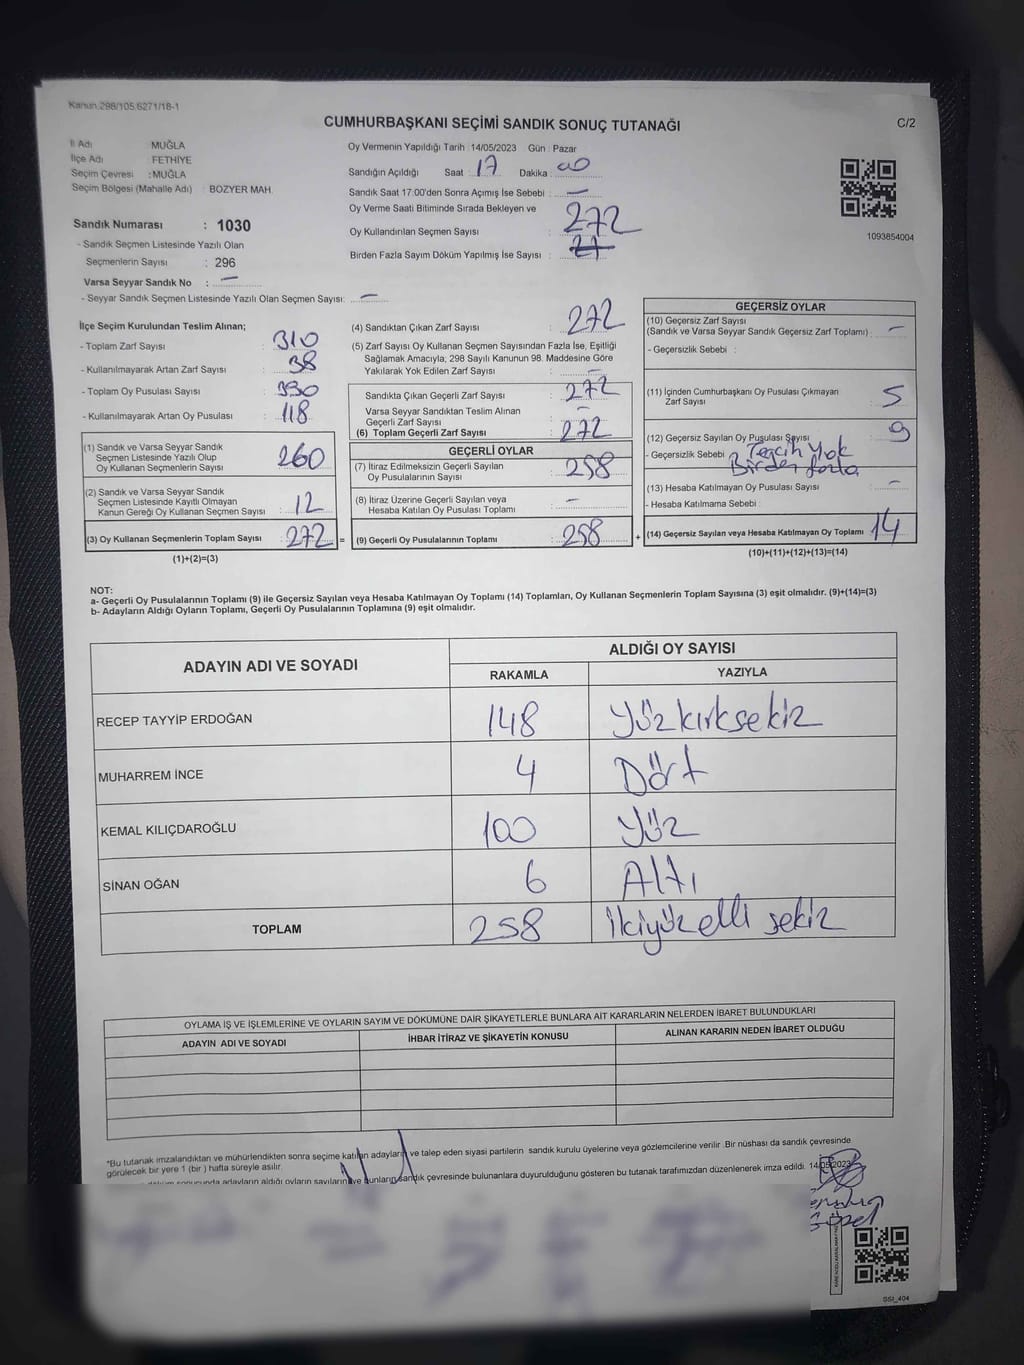 Kanun.298/105.6271/18-1
C/2
CUMHURBAŞKANI SEÇİMİ SANDIK SONUÇ TUTANAĞI
İl Adı : MUĞLA
İlçe Adı : FETHİYE
Seçim Çevresi : MUĞLA
Seçim Bölgesi (Mahalle Adı) : BOZYER MAH.
Sandık Numarası : 1030
- Sandık Seçmen Listesinde Yazılı Olan
Seçmenlerin Sayısı : 296
Varsa Seyyar Sandık No : —
- Seyyar Sandık Seçmen Listesinde Yazılı Olan Seçmen Sayısı: —
Oy Vermenin Yapıldığı Tarih : 14/05/2023 Gün : Pazar
Sandığın Açıldığı Saat : 17 Dakika : 00
Sandık Saat 17:00'den Sonra Açımış İse Sebebi : —
Oy Verme Saati Bitiminde Sırada Bekleyen ve
Oy Kullandırılan Seçmen Sayısı : 272
Birden Fazla Sayım Döküm Yapılmış İse Sayısı :
1093854004
İlçe Seçim Kurulundan Teslim Alınan;
- Toplam Zarf Sayısı : 310
- Kullanılmayarak Artan Zarf Sayısı : 38
- Toplam Oy Pusulası Sayısı : 390
- Kullanılmayarak Artan Oy Pusulası : 118
(1) Sandık ve Varsa Seyyar Sandık
Seçmen Listesinde Yazılı Olup
Oy Kullanan Seçmenlerin Sayısı : 260
(2) Sandık ve Varsa Seyyar Sandık
Seçmen Listesinde Kayıtlı Olmayan
Kanun Gereği Oy Kullanan Seçmen Sayısı : 12
(3) Oy Kullanan Seçmenlerin Toplam Sayısı : 272 =
(1)+(2)=(3)
(4) Sandıktan Çıkan Zarf Sayısı : 272
(5) Zarf Sayısı Oy Kullanan Seçmen Sayısından Fazla İse, Eşitliği
Sağlamak Amacıyla; 298 Sayılı Kanunun 98. Maddesine Göre
Yakılarak Yok Edilen Zarf Sayısı : —
Sandıkta Çıkan Geçerli Zarf Sayısı : 272
Varsa Seyyar Sandıktan Teslim Alınan
Geçerli Zarf Sayısı : —
(6) Toplam Geçerli Zarf Sayısı : 272
GEÇERLİ OYLAR
(7) İtiraz Edilmeksizin Geçerli Sayılan
Oy Pusulalarının Sayısı : 258
(8) İtiraz Üzerine Geçerli Sayılan veya
Hesaba Katılan Oy Pusulası Toplamı : —
(9) Geçerli Oy Pusulalarının Toplamı : 258 +
GEÇERSİZ OYLAR
(10) Geçersiz Zarf Sayısı
(Sandık ve Varsa Seyyar Sandık Geçersiz Zarf Toplamı) : —
- Geçersizlik Sebebi :
(11) İçinden Cumhurbaşkanı Oy Pusulası Çıkmayan
Zarf Sayısı : 5
(12) Geçersiz Sayılan Oy Pusulası Sayısı : 9
- Geçersizlik Sebebi : Tercih Yok
Birden fazla
(13) Hesaba Katılmayan Oy Pusulası Sayısı : —
- Hesaba Katılmama Sebebi :
(14) Geçersiz Sayılan veya Hesaba Katılmayan Oy Toplamı : 14
(10)+(11)+(12)+(13)=(14)
NOT:
a- Geçerli Oy Pusulalarının Toplamı (9) ile Geçersiz Sayılan veya Hesaba Katılmayan Oy Toplamı (14) Toplamları, Oy Kullanan Seçmenlerin Toplam Sayısına (3) eşit olmalıdır. (9)+(14)=(3)
b- Adayların Aldığı Oyların Toplamı, Geçerli Oy Pusulalarının Toplamına (9) eşit olmalıdır.
ADAYIN ADI VE SOYADI ALDIĞI OY SAYISI
RAKAMLA YAZIYLA
RECEP TAYYİP ERDOĞAN 148 Yüzkırksekiz
MUHARREM İNCE 4 Dört
KEMAL KILIÇDAROĞLU 100 Yüz
SİNAN OĞAN 6 Altı
TOPLAM 258 İkiyüzelli sekiz
OYLAMA İŞ VE İŞLEMLERİNE VE OYLARIN SAYIM VE DÖKÜMÜNE DAİR ŞİKAYETLERLE BUNLARA AİT KARARLARIN NELERDEN İBARET BULUNDUKLARI
ADAYIN ADI VE SOYADI İHBAR İTİRAZ VE ŞİKAYETİN KONUSU ALINAN KARARIN NEDEN İBARET OLDUĞU
*Bu tutanak imzalandıktan ve mühürlendikten sonra seçime katılan adayların ve talep eden siyasi partilerin sandık kurulu üyelerine veya gözlemcilerine verilir. Bir nüshası da sandık çevresinde
görülecek bir yere 1 (bir) hafta süreyle asılır.
sonucunda adayların aldığı oyların sayıların ve bunların sandık çevresinde bulunanlara duyurulduğunu gösteren bu tutanak tarafımızdan düzenlenerek imza edildi. 14/05/2023
SSI_404